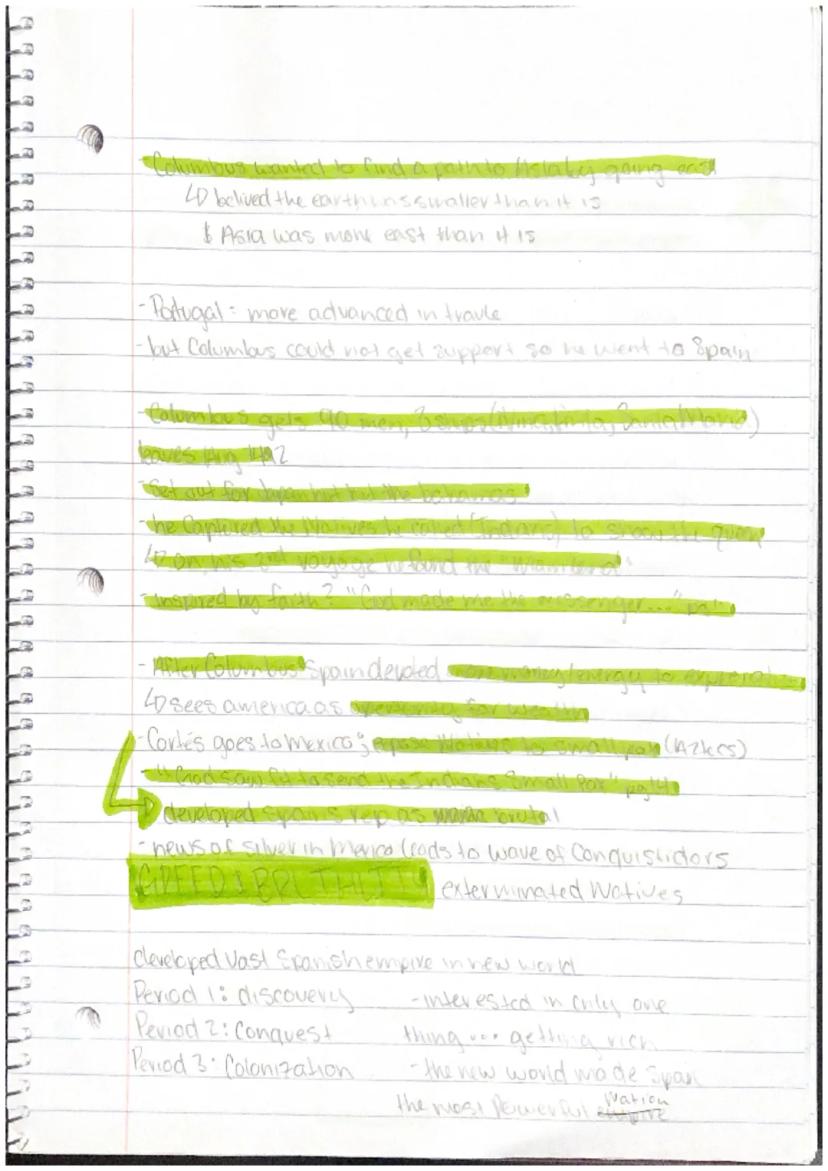 -Columbus wanted to find a path to Asia by going east
↳ belived the earth was smaller than it is
& Asia was more east than it is
-Portugal: more advanced in travle
-but Columbus could not get support so he went to Spain
-Columbus gets 90 men, 3 ships (Nina, Pinta, Santa Maria)
leaves Aug 1492
-Set out for Japan but hit the bahamas
-he captured the Natives he called (Indians) to show the queen
↳ on his 2nd voyage he found the "mainland"
-inspired by faith? "God made me the messenger..." pg
-After Columbus Spain devoted money/energy to
↳ sees america as for wealth
-Cortés goes to Mexico; expose Natives to small pox (Aztecs)
-"God saw fit to send the Indians Small Pox" pg 4
developed spains rep as brutal
-news of silver in Mexico leads to wave of Conquistidors
GREED & BRUTALITY exterminated Natives
developed vast Spanish empire in new world
Period 1: discovery -interested in only one
Period 2: Conquest thing... getting rich
Period 3: Colonization -the new world made Span
the most powerful empire Nation